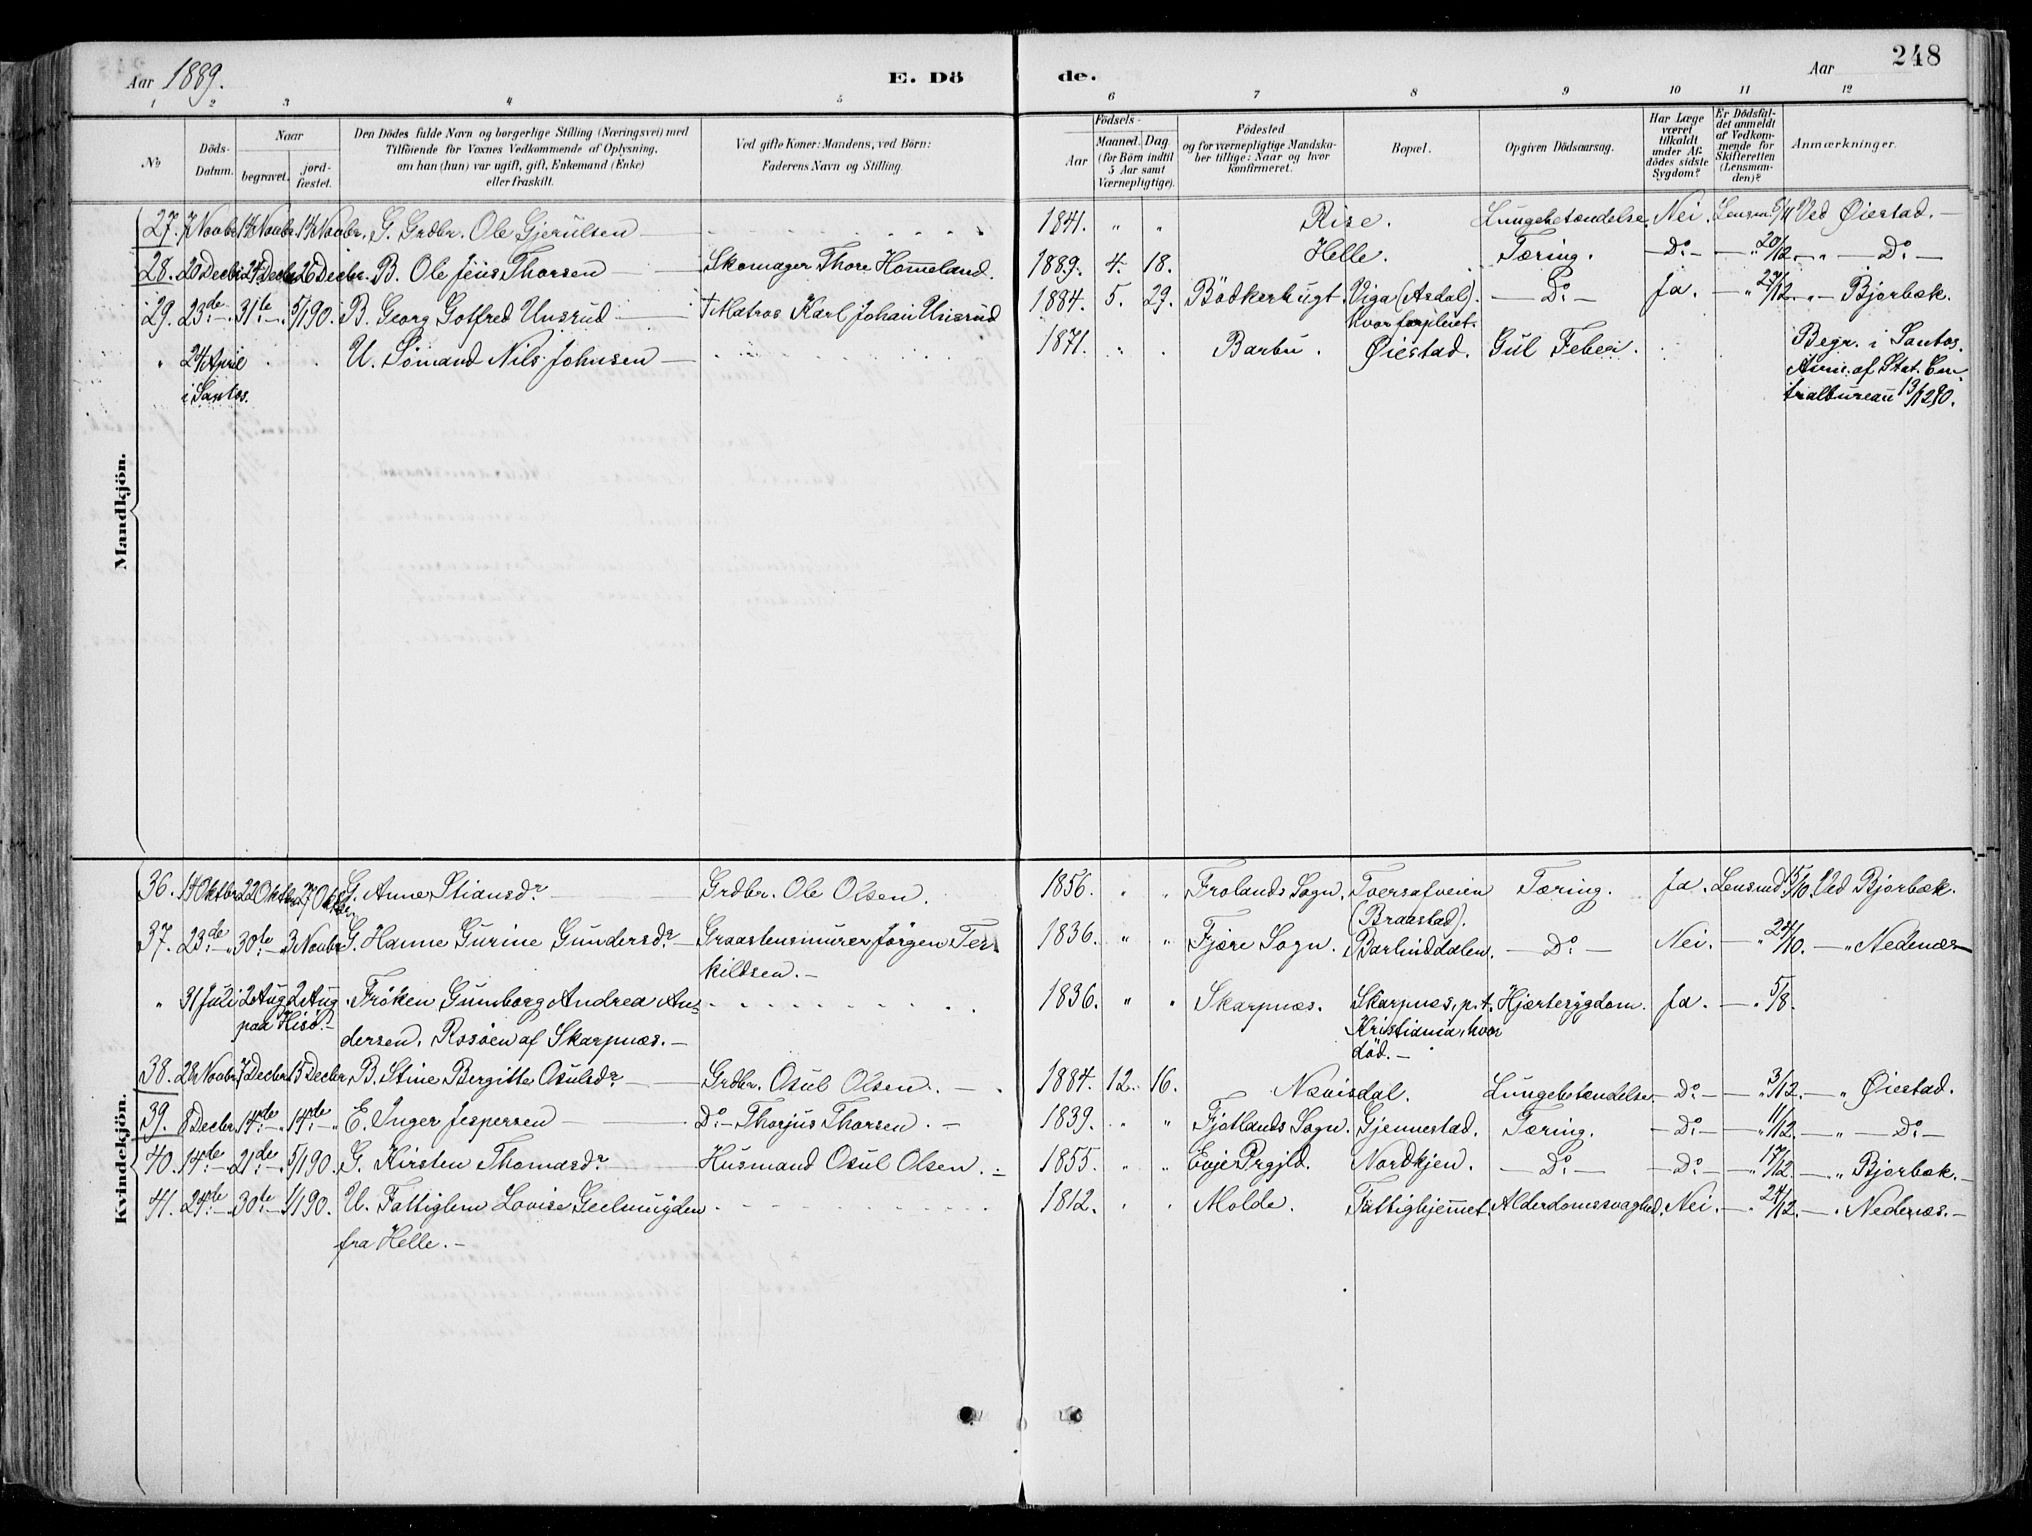 Aar 1889.
E. Dö
de.
Aar
248
1 2 3 4 5 6 7 8 9 10 11 12
No
Döds-
Datum.
Naar
begravet.
jord-
fæstet.
Den Dödes fulde Navn og borgerlige Stilling (Næringsvei) med
Tilföiende for Voxnes Vedkommende af Oplysning,
om han (hun) var ugift, gift, Enkemand (Enke)
eller fraskilt.
Ved gifte Koner: Mandens, ved Börn:
Faderens Navn og Stilling.
Födsels-
Aar
Maaned. Dag
(for Börn indtil
5 Aar samt
Værnepligtige).
Födested
og for værnepligtige Mandska-
ber tillige: Naar og hvor
konfirmeret.
Bopæl.
Opgiven Dödsaarsag.
Har Læge
været
tilkaldt
under Af-
dödes sidste
Sygdom?
Er Dödsfal-
det anmeldt
af Vedkom-
mende for
Skifteretten
(Lensman-
den)?
Anmærkninger.
Mandkjön.
27. 7 Novbr 14 Novbr. 14 Novbr. G. Grdbr. Ole Gjerulsen — 1841. " " Rise. Lungebetændelse. Nei. Lensm. /11 Ved Øiestad. —
28. 20 Decbr 24 Decbr 26 Decbr. B. Ole Jens Thorsen — Skomager Thore Homeland. 1889. 4. 18. Helle. Tæring. — Do — — " 20/12. " — Do —
29. 23de — 31te — 5/1 90. B. Georg Gotfred Unsrud — † Matros Karl Johan Unsrud 1884. 5. 29. Bödkerbugt. Viga (Asdal). — Do — Ja. — " 27/12. " — Bjorbæk.
hvor forpleiet.
" 24 April U. Sömand Nils Johnsen — 1871. " " Barbu. Øiestad. Gul Feber. Begr. i Santos.
i Santos. Anm. af Stat. Cen-
tralbureau 13/12 90.
Kvindekjön.
36. 14 Oktbr 22 Oktbr 27 Oktbr G. Anne Stiansdr — Grdbr. Ole Olsen. 1856. " " Frolands Sogn. Tversafveien Tæring. Ja. Lensmd 15/10. Ved Bjorbæk.
(Braastad).
37. 23de — 30te — 3 Novbr G. Hanne Gurine Gundersdr — Graastensmurer Jörgen Ter- 1836. " " Fjære Sogn. Barlinddalen. — Do — Nei. — " 24/10. — " Nedenæs —
kildsen. —
" 31 Juli 2 Aug 2 Aug. Fröken Gunborg Andrea An- 1836. " " Skarpnæs. Skarpnæs, p.t. Hjærtesygdom. Ja. — " 5/8.
paa Hisö. — dersen, Rosöen af Skarpnæs. — Kristiania, hvor
död. —
38. 28 Novbr 7 Decbr. 15 Decbr. B. Stine Bergitte Osulsdr — Grdbr. Osul Olsen. — 1884. 12. 16. Nævisdal. Lungebetændelse — Do — — " 3/12. — " Øiestad.
39. 8 Decbr. 14de — 14de — " E. Inger Jespersen — Do — Thorjus Thorsen. — 1839. " " Fjotlands Sogn. Gjennestad. Tæring. — Do — — " 11/12. — " — Do —
40. 14de — 21de — 5/1 90. G. Kirsten Thomasdr — Husmand Osul Olsen. — 1855. " " Evje Prgjld. Nordkjen. — Do — — Do — — " 17/12. — " Bjorbæk. —
41. 24de — 30te — 1/1 90. U. Fattiglem Lovise Geelmuyden 1812. " " Molde. Fattighjemmet. Alderdomssvaghed. Nei. — " 24/12. — " Nedenæs. —
fra Helle. —